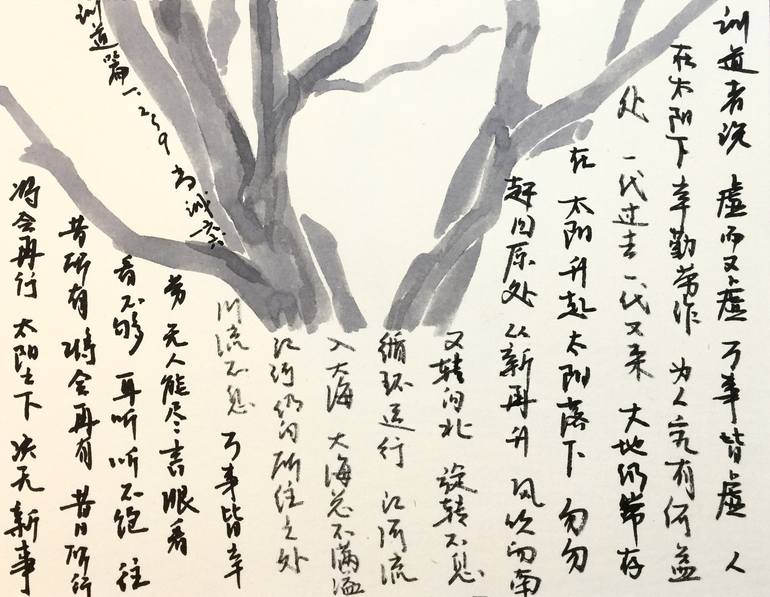 训道者说 虚而又虚 万事皆虚 人
在太阳下辛勤劳作 为人究有何益
处 一代过去 一代又来 大地仍常存
在 太阳升起 太阳落下 匆匆
赶回原处 从新再升 风吹向南
又转向北 旋转不息
循环运行 江河流
入大海 大海总不满溢
江河仍向所往之处
川流不息 万事皆辛
劳 无人能尽言 眼看
看不够 耳听 听不饱 往
昔所有 将会再有 昔日所行
将会再行 太阳之下 决无新事
训道篇一.259